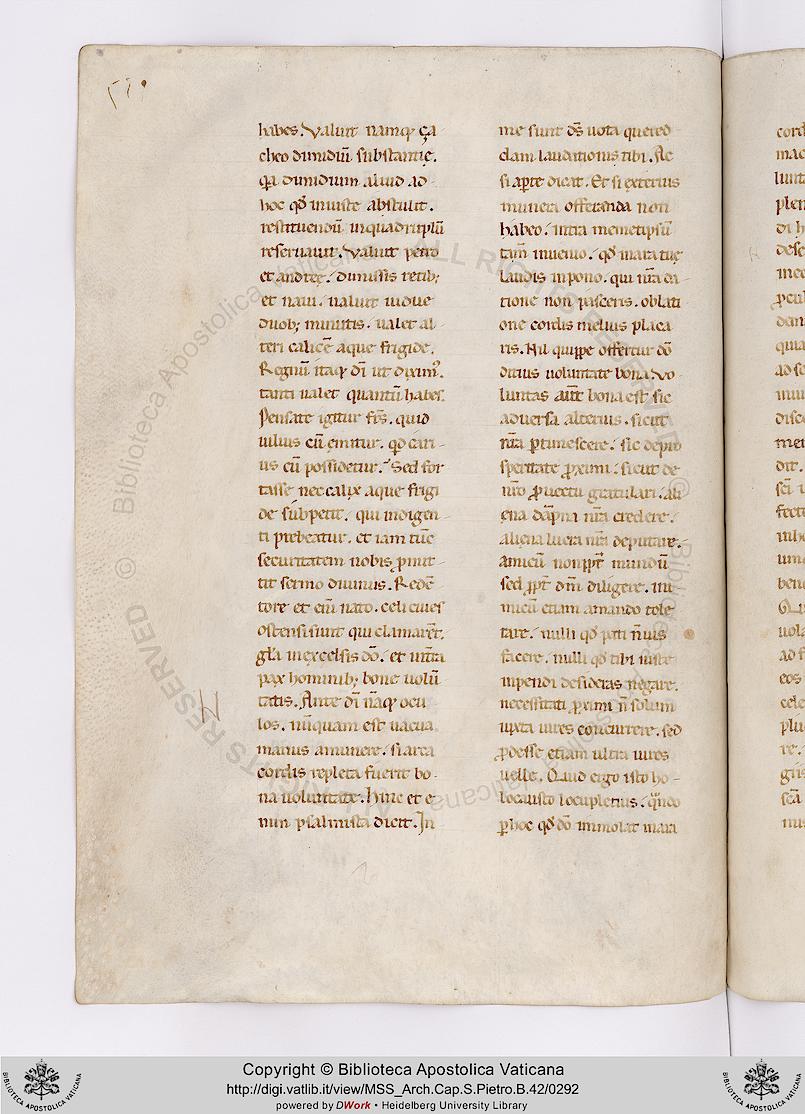 habes. Valuit namq; ça
cheo dimidiū substantię.
q̄a dimidium aliud ad
hoc qd̄ iniuste abstulit.
restituendū inquadruplū
reseruauit. Valuit petro
et andreę. dimissis retib;
et naui. ualuit uidue
duob; minutis. ualet al-
teri calicē aque frigide.
Regnū itaq; dī ut diximꝰ.
tanti ualet quantū habes.
Pensate igitur frs̄. quid
uilius cū emitur. qd̄ cari-
us cū possidetur. Sed for
tasse nec calix aque frigi
de subpetit. qui indigen-
ti prebeatur. et iam tūc
securitatem nobis ꝓmit-
tit sermo diuinus. Redē-
tore et enī nato. celi ciues
ostensi sunt qui clamarēt.
gl̄a inexcelsis dō. et intr̄a
pax hominib; bone uolū
tatis. Ante dī nāq; ocu
los. nūquam est uacua
manus amunere. si arca
cordis repleta fuerit bo-
na uoluntate. hinc et e
nim psalmista dicit. In
me sunt ds̄ uota que red
dam laudationis tibi. Ac
si aꝑte dicat. Et si exterius
munera offeranda non
habeo. intra memetipsū
tam̄ inuenio. qd̄ inara tuę
laudis inpono. qui nr̄a da-
tione non pasceris. oblati
one cordis melius placa
ris. Nil quippe offertur dō
ditius uoluntate bona. Vo-
luntas aūt bona est sic
aduersa alterius. sicut
nr̄a ꝑtimescere. sic depro
speritate ꝓximi. sicut de
nr̄o ꝓuectu gratulari. ali
ena dāpna nr̄a credere.
aliena lucra nr̄a deputare.
Amicū non ꝓpt̄ mundū
sed ꝓpt̄ dm̄ diligere. ini
micū etiam amando tole
rare. nulli qd̄ pati n̄ uis
facere. nulli qd̄ tibi iuste
inpendi desideras negare.
necessitati ꝓximi n̄ solum
iuxta uires concurrere. sed
ꝓdesse etiam ultra uires
uelle. Quid ergo isto ho-
locausto locupletius. qn̄do
ꝑ hoc qd̄ dō immolat inara
Copyright © Biblioteca Apostolica Vaticana
http://digi.vatlib.it/view/MSS_Arch.Cap.S.Pietro.B.42/0292
powered by DWork • Heidelberg University Library